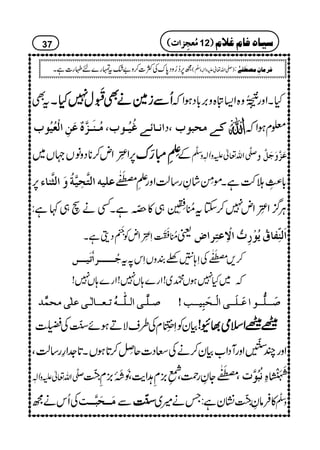 37 سیاہ فام غلام (12 مُعجزات)
فرمانِ مصطفٰے (صلی اللہ تعالٰی علیہ واٰلہ وسلم): مجھ پر دُرُود پاک کی کثرت کرو بے شک یہ تمہارے لئے طہارت ہے۔
کیا۔ اور نتیجۃً وہ ایسا تباہ و برباد ہوا کہ اُسے زمین نے بھی قَبول نہیں کیا۔ یہ بھی
معلوم ہوا کہ اللہ عَزَّوَجَلَّ کے محبوب، دانائے غُیوب، مُنَزَّہٌ عَنِ الْعُیُوب
عَزَّوَجَلَّ وصلَّی اللہ تعالٰی علیہ واٰلہٖ وسلَّم کے علمِ مبارَک پر اعتِراض کرنا دونوں جہاں میں
باعثِ ہلاکت ہے۔ مومن شانِ رسالت اور علمِ مصطَفٰے علیہ التَّحِیَّۃُ وَ الثَّناء پر
ہرگز اعتِراض نہیں کرسکتا۔ یہ مُنافقین ہی کا حصّہ ہے۔ کسی نے سچ ہی کہا ہے:
اَلنِّفَاقُ یُوْرِثُ الْاِعْتِرَاض یعنی مُنافَقَت اِعتِراض کو جنم دیتی ہے۔
کریں مصطَفٰے کی اِہانتیں کھلے بندوں اِس پہ یہ جُرأتیں
کہ میں کیا نہیں ہوں محمدی! ارے ہاں نہیں! ارے ہاں نہیں!
صَلُّوا عَلَی الْحَبِیب! صلَّی اللّٰہُ تعالٰی علٰی محمَّد
میٹھے میٹھے اسلامی بھائیو! بیان کو اِختِتام کی طرف لاتے ہوئے سنّت کی فضیلت
اور چند سنّتیں اور آداب بیان کرنے کی سعادت حاصل کرتا ہوں۔ تاجدارِ رسالت،
شَہَنشاہِ نُبُوَّت، مصطَفٰے جانِ رحمت، شمعِ بزمِ ہدایت، نَوشۂ بزمِ جنّت صلی اللہ تعالٰی علیہ واٰلہ
وسلم کا فرمانِ جنّت نشان ہے: جس نے میری سنّت سے مَحَبَّت کی اُس نے مجھ